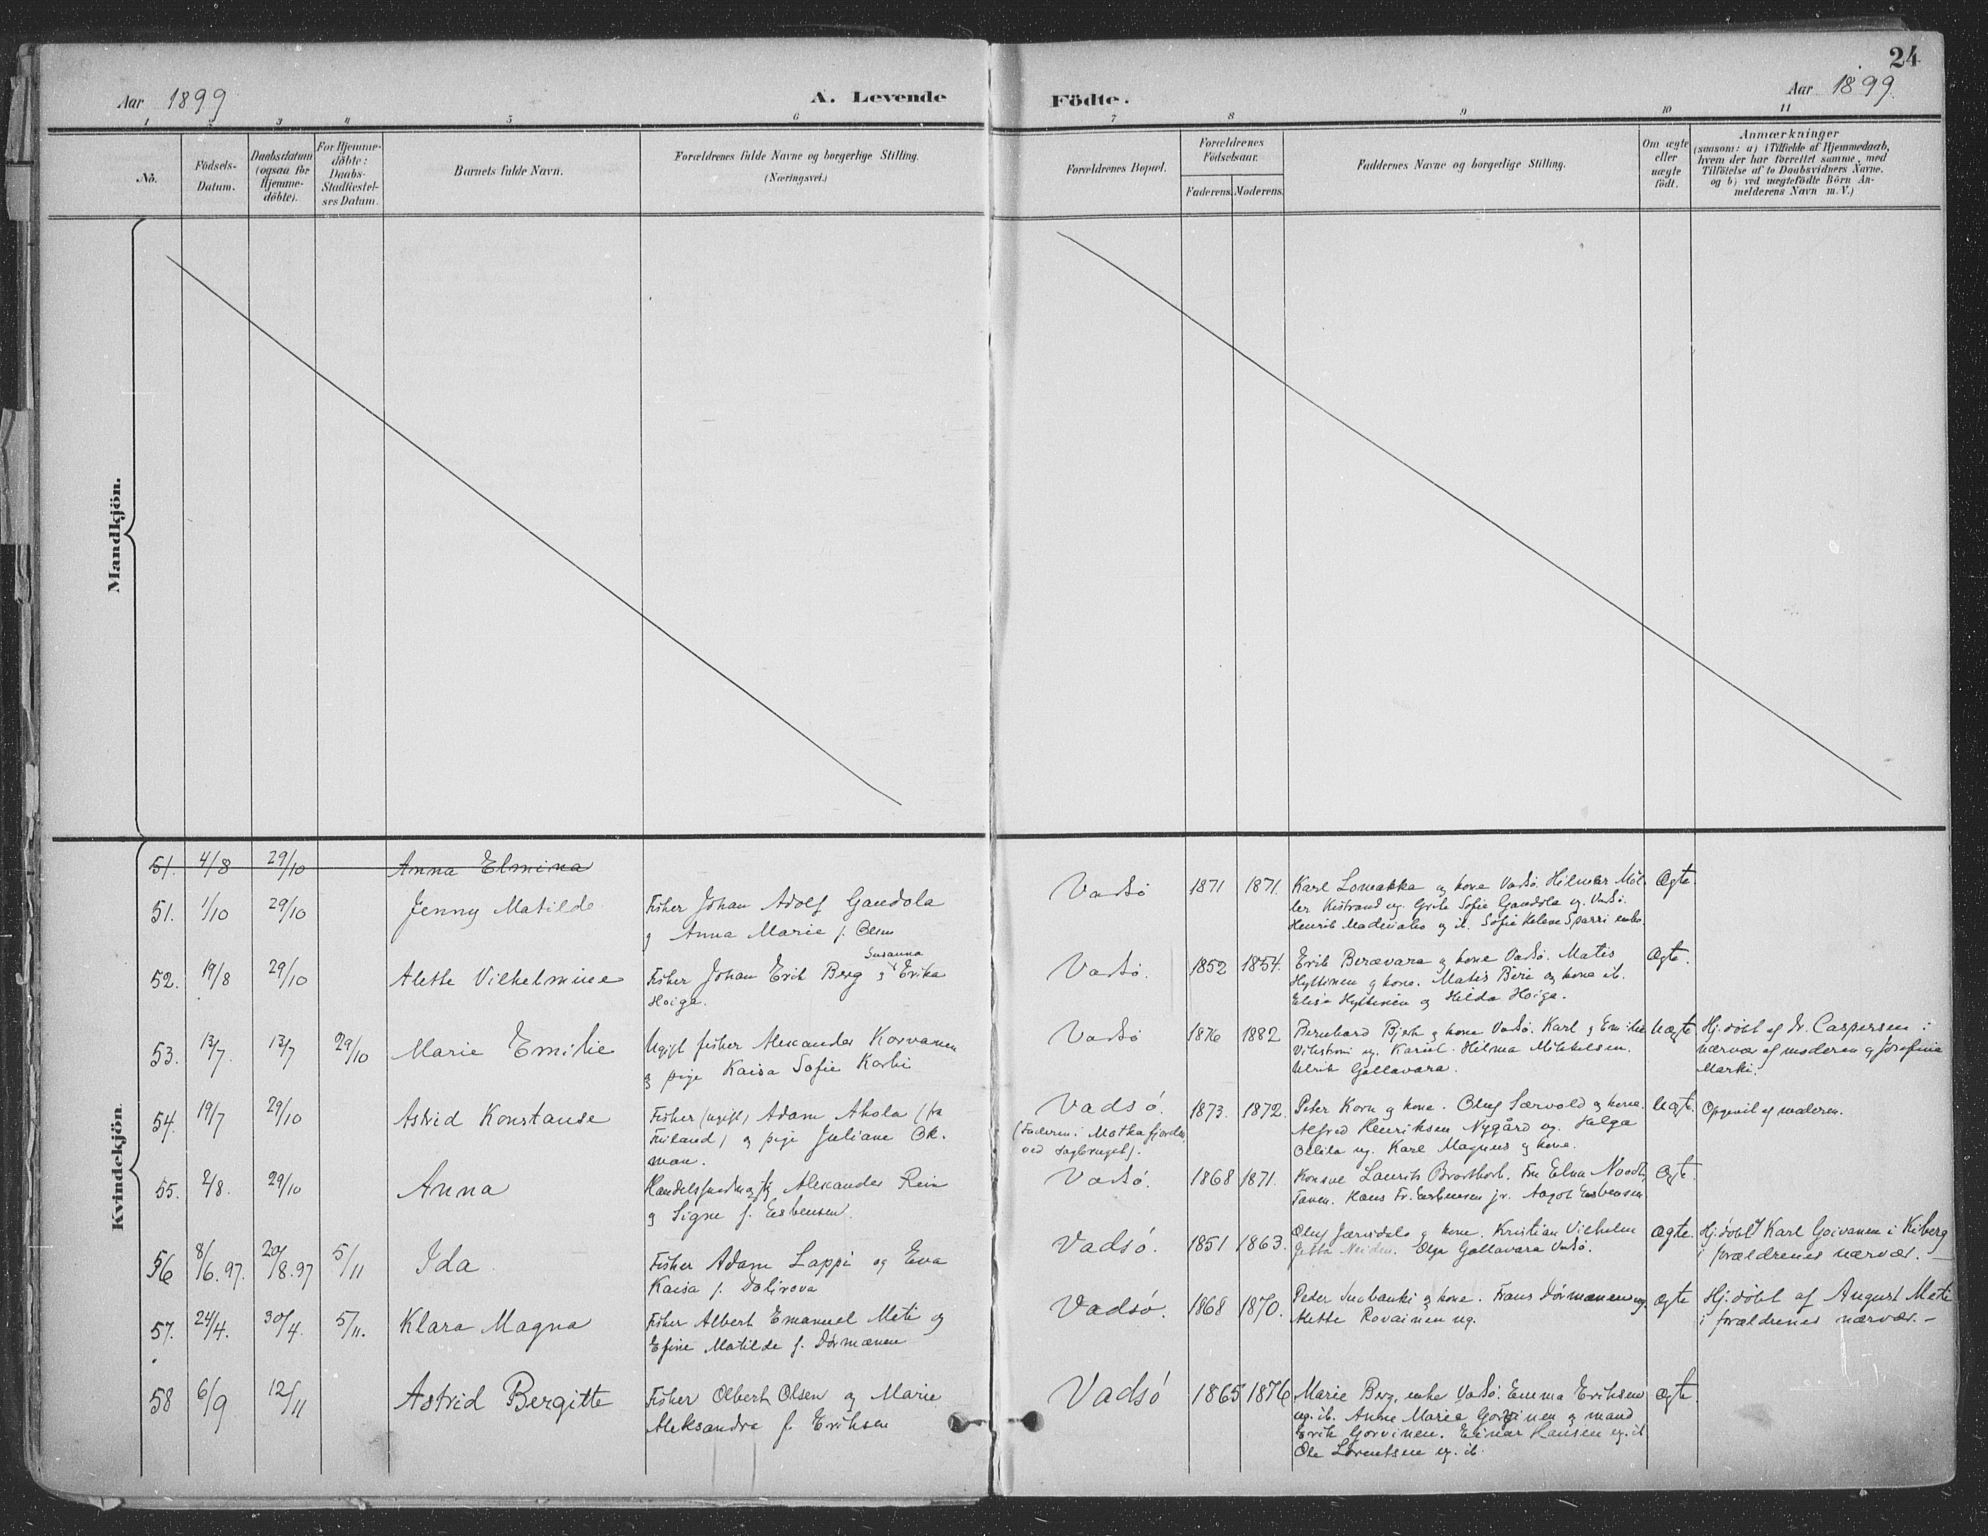 24
Aar 1899
A. Levende
Födte.
Aar 1899
1 2 3 4 5 6 7 8 9 10 11
No.
Födsels-Datum.
Daabsdatum (ogsaa for Hjemme-döbte).
For Hjemme-döbte: Daabs-Stadfæstel-ses Datum.
Barnets fulde Navn.
Forældrenes fulde Navne og borgerlige Stilling.
(Næringsvei.)
Forældrenes Bopæl.
Forældrenes Födselsaar.
Faderens. Moderens.
Faddernes Navne og borgerlige Stilling.
Om ægte eller uægte födt.
Anmærkninger
(saasom: a) i Tilfælde af Hjemmedaab,
hvem der har forrettet samme, med
Tilföielse af to Daabsvidners Navne,
og b) ved uægtefödte Börn An-
melderens Navn m. V.)
Mandkjön.
Kvindekjön.
51. 4/8 29/10 Anna Elmina
51. 1/10 29/10 Jenny Matilde
Fisker Johan Adolf Gandola
g Anna Marie f. Olsen
Vadsö 1871 1871.
Karl Lomakka og kone Vadsö. Hilmar Möl-
ler Kistrand ug. Grete Sofie Gandola ug. Vadsö.
Henrik og Sofie Helene Sparri enke
Ægte
52. 19/8 29/10 Alette Vilhelmine
Fisker Johan Erik Berg g Susanna Erika
Hoiga.
Vadsö. 1852 1854.
Erik Berævara g kone Vadsö. Matis
Hyttinen g kone. Matis Beri og kone ib.
Elisa Hyttinen og Hilda Hoiga.
Ægte.
53. 13/7. 13/7 29/10 Marie Emilie
Ugift fisker Alexander Korvanen
g pige Kaisa Sofie Korhi
Vadsö 1876 1882
Bernhard Bjerk g kone Vadsö. Karl g Emilie
Vikström ug. Hilma Mikkelsen.
Ulrik Gallavara.
Uægte
Hj. döbt af Dr. Caspersen i
nærvær af moderen g Josefine
Marki.
54. 19/7 29/10 Astrid Konstanse
Fisker (ugift) Adam Ahola (fra
Finland) og pige Juliane Ok-
man.
Vadsö.
(Faderen i Motkafjorden
ved Sagbruget).
1873. 1872.
Peter Korn g kone. Oluf Særvold g kone.
Alfred Henriksen Nygård ug. Helga
ug. Karl Magnus g kone
Uægte.
Opgivet af moderen.
55. 2/8. 29/10 Anna
Alexander Rein
g Signe f. Esbensen.
Vadsö. 1868 1871.
Konsul Laurits Brodtkorb. Frk Elna Noodt,
Tanen. Hans Fr. Esbensen jr. Aagot Esbensen
Ægte.
56 8/6.97. 20/8.97 5/11 Ida
Fisker Adam Lappi og Eva
Kaisa f. Dolivova
Vadsö. 1851 1863.
Oluf g kone. Kristian Vilhelm
Neiden. Olga Gallavara Vadsö.
Ægte.
Hj. döbt af Karl Goivanen i Kiberg
i forældrenes nærvær. —
57. 24/4. 30/4. 5/11. Klara Magna
Fisker Albert Emanuel Meti og
Efine Matilde f. Dörmænen
Vadsö. 1868 1870.
Peder g kone. Frans Dörmænen ug.
Alette Rovainen ug.
Ægte
Hj. döbt af August Meti
i forældrenes nærvær. —
58 6/9 12/11 Astrid Bergitte
Fisker Olbert Olsen og Marie
Aleksandra f. Eriksen
Vadsö 1865 1876
Marie Berg, enke Vadsö. Emma Eriksen
ug. ib. Anne Marie Gorvinen g mand
Erik Gorvinen. Einar Hansen ug. ib
Ole Lorentsen ug. ib.
Ægte.